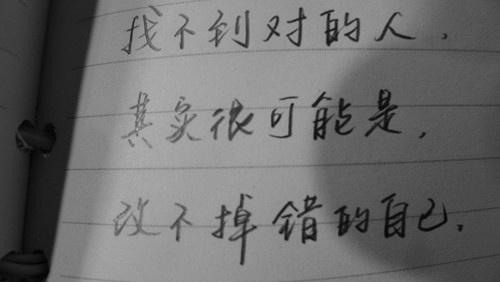 找不到对的人.
其实很可能是,
改不掉错的自己.